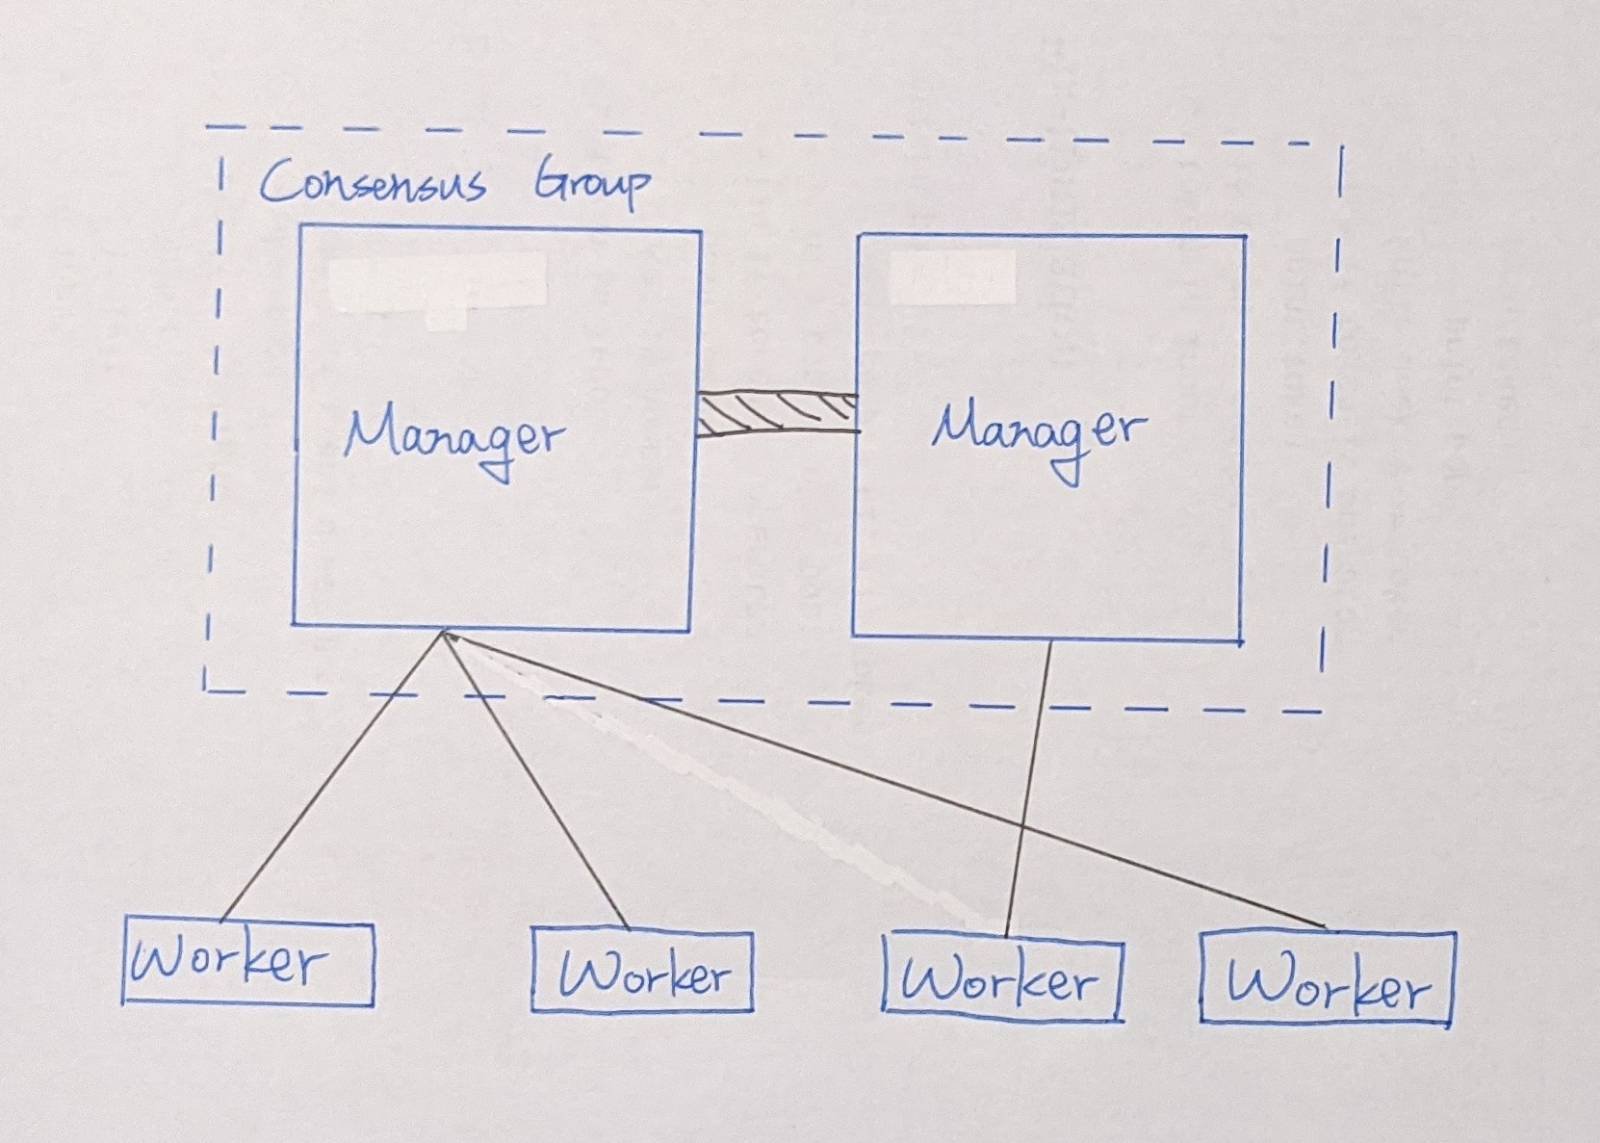 Consensus Group
Manager
Manager
Worker
Worker
Worker
Worker